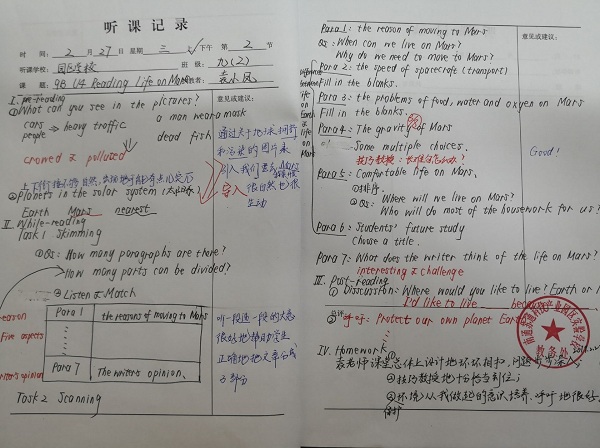 听课记录
时间: 2月27日 星期三 下午 第2节
听课学校: 园区学校 班级: 九(2)
课题: 9B U4 Reading Life on Mars 教者: 袁小凤
意见或建议:
I. Pre-reading
①What can you see in the pictures?
cars people ⇒ heavy traffic
a man near a mask
dead fish
crowed & polluted
通过关于地球拥挤
和污染的图片来
引入我们要去
很自然也很
生动
导入
②Planets in the solar system (太阳系)
Earth Mars nearest
II. While-reading
Task1. Skimming
①Qs: How many paragraphs are there?
How many parts can be divided?
②Listen & Match
reason
Five aspects
writer's opinion
Para 1 the reasons of moving to Mars
Para 7 The writer's opinion.
听一段连一段的大意
很好地帮助学生
正确地把文章分成
3部分
Task2 Scanning
意见或建议:
Para 1: the reason of moving to Mars
Qs: When can we live on Mars?
Why do we need to move to Mars?
Para 2: the speed of spacecraft (transport)
Fill in the blanks.
Para 3: the problems of food, water and oxyen on Mars
Fill in the blanks.
Para 4: The gravity of Mars
Some multiple choices.
Good!
Para 5: Comfortable life on Mars.
①排序.
②Qs: Where will we live on Mars?
Who will do most of the housework for us?
Para 6: Students' future study
Choose a title.
Para 7: What does the writer think of the life on Mars?
interesting & challenge
III. Post-reading
① Discussion: Where would you like to live? Earth or
I'd like to live
② 呼吁: Protect our own planet Earth
教务处
IV. Homework
袁老师课堂总体上设计地环环相扣,
①技巧教授地十分恰当到位;
②环境从我做起的意识培养、呼吁地很好